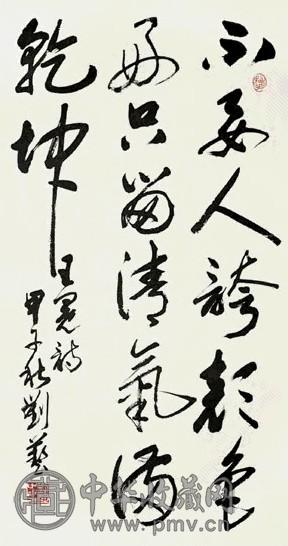 不要人誇顔色
好只留清氣滿
乾坤
王冕詩
甲子秋劉藝
中华收藏网
www.pmv.cn